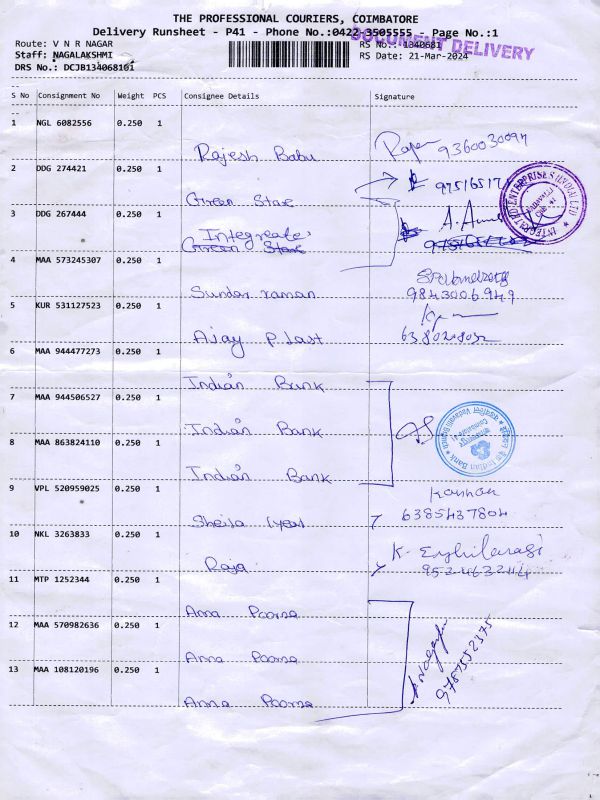 THE PROFESSIONAL COURIERS, COIMBATORE
Delivery Runsheet - P41 - Phone No.:0422-3505555 - Page No.:1
DOCUMENT DELIVERY
Route: V N R NAGAR
RS No.: 1340681
Staff: NAGALAKSHMI
RS Date: 21-Mar-2024
DRS No.: DCJB134068101
S No Consignment No Weight PCS Consignee Details Signature
1 NGL 6082556 0.250 1
Rajesh Babu 9360030094
2 DDG 274421 0.250 1
Green Stare
3 DDG 267444 0.250 1
Integreate
Green Stare
4 MAA 573245307 0.250 1
Sundar raman 9843006949
5 KUR 531127523 0.250 1
Ajay P. Last
6 MAA 944477273 0.250 1
Indian Bank
7 MAA 944506527 0.250 1
Indian Bank
8 MAA 863824110 0.250 1
Indian Bank
Indian Bank
9 VPL 520959025 0.250 1
Kannan
Sheila 6385437804
10 NKL 3263833 0.250 1
Raja
11 MTP 1252344 0.250 1
Anna Poorna
12 MAA 570982636 0.250 1
Anna Poorna
13 MAA 108120196 0.250 1
Anna Poorna
9787552375